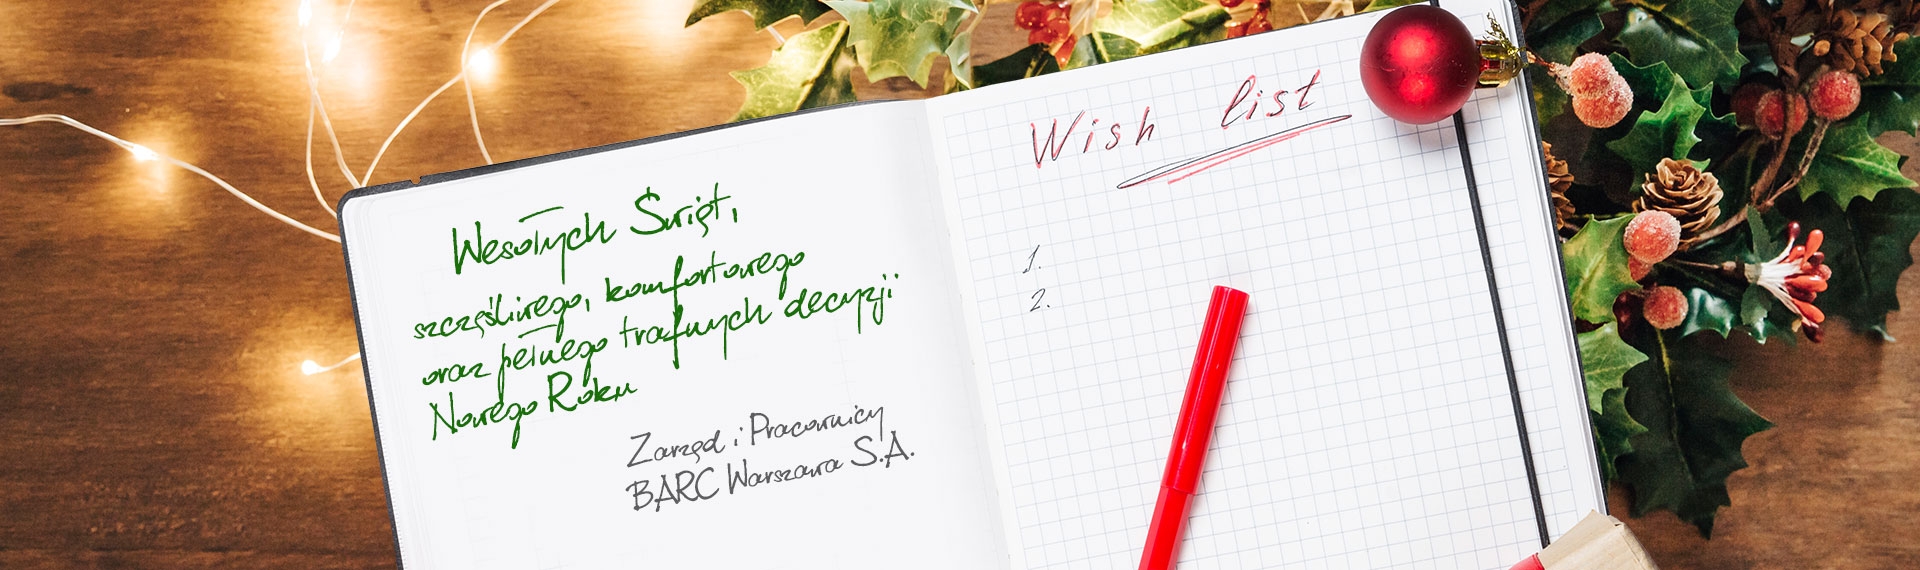 Wesołych Świąt,
szczęśliwego, komfortowego
oraz pełnego trafnych decyzji
Nowego Roku
Zarząd i Pracownicy
BARC Warszawa S.A.
Wish list
1.
2.